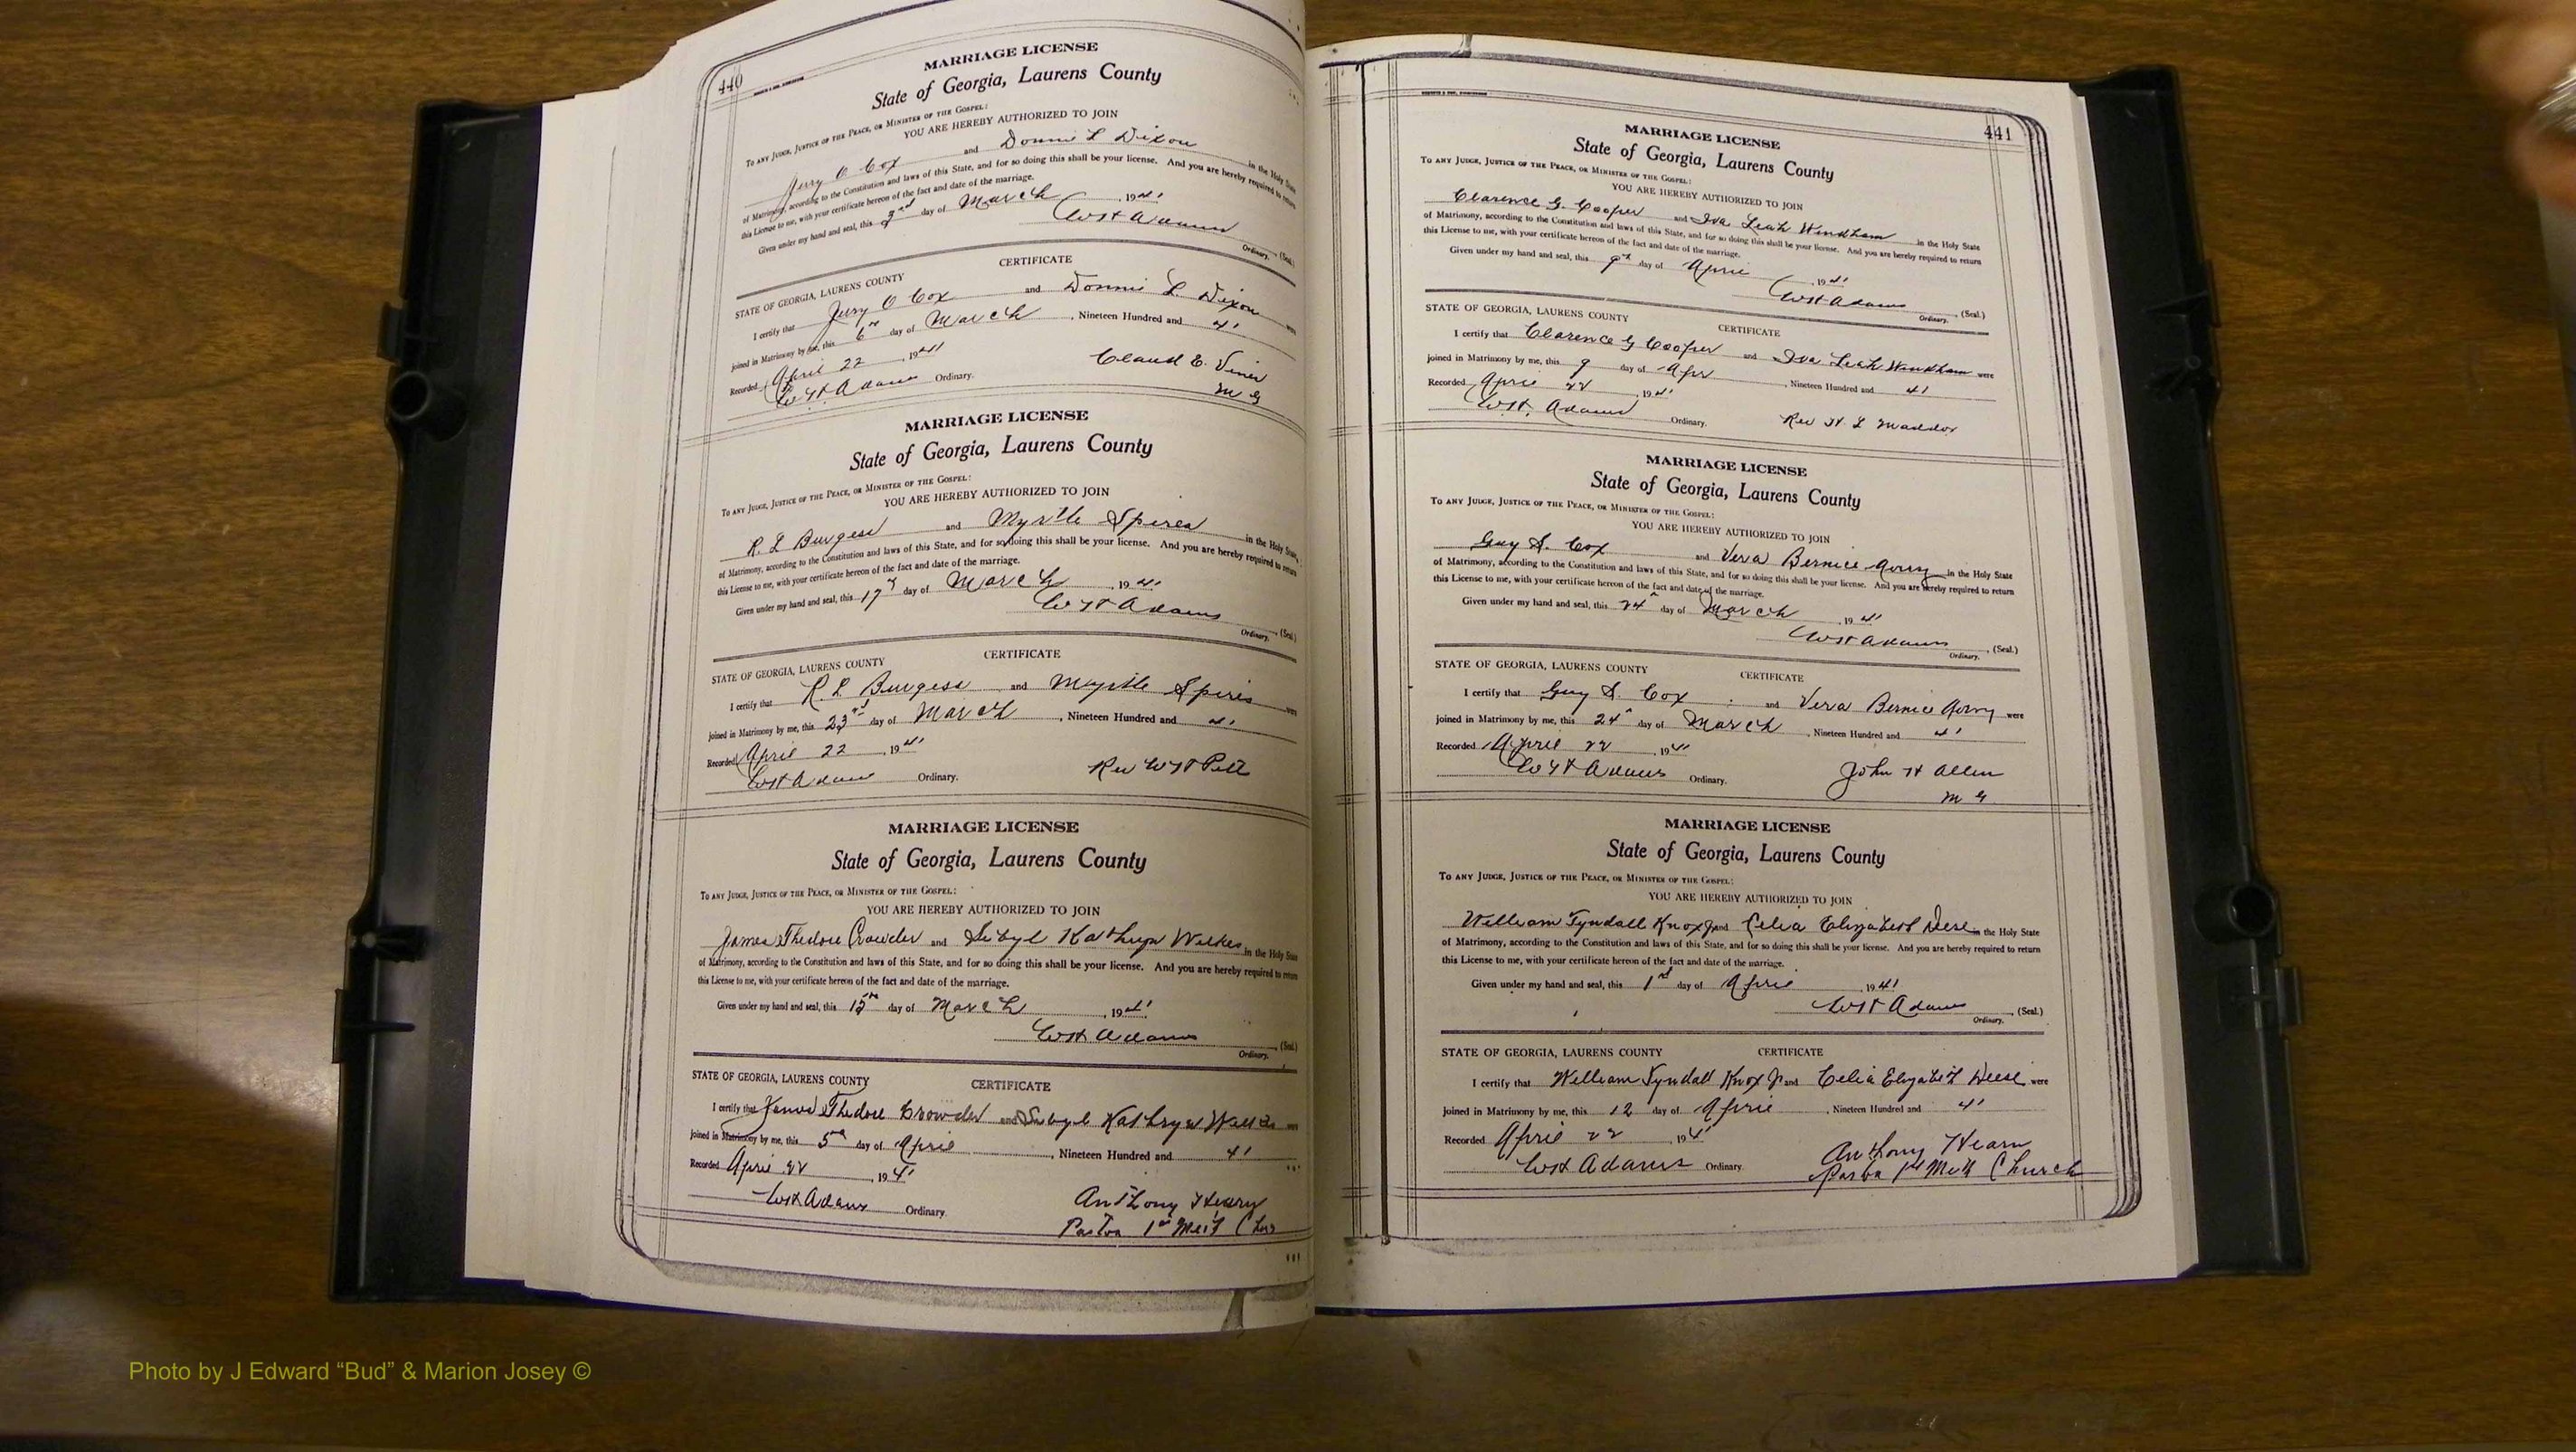 440
MARRIAGE LICENSE
State of Georgia, Laurens County
To any Judge, Justice of the Peace, or Minister of the Gospel:
YOU ARE HEREBY AUTHORIZED TO JOIN
Jerry O Cox and Donnie L Dixon in the Holy State
of Matrimony, according to the Constitution and laws of this State, and for so doing this shall be your license. And you are hereby required to return
this License to me, with your certificate hereon of the fact and date of the marriage.
Given under my hand and seal, this 3rd day of March, 1941
W H Adams (Seal.)
Ordinary.
CERTIFICATE
STATE OF GEORGIA, LAURENS COUNTY
I certify that Jerry O Cox and Donnie L. Dixon were
joined in Matrimony by me, this 6th day of March, Nineteen Hundred and 41
Recorded April 22, 1941
W H Adams Ordinary. Claud E. Viner
M G
MARRIAGE LICENSE
State of Georgia, Laurens County
To any Judge, Justice of the Peace, or Minister of the Gospel:
YOU ARE HEREBY AUTHORIZED TO JOIN
R. L Burgess and Myrtle Spires in the Holy State
of Matrimony, according to the Constitution and laws of this State, and for so doing this shall be your license. And you are hereby required to return
this License to me, with your certificate hereon of the fact and date of the marriage.
Given under my hand and seal, this 17 day of March, 1941
W H Adams (Seal.)
Ordinary.
CERTIFICATE
STATE OF GEORGIA, LAURENS COUNTY
I certify that R. L. Burgess and Myrtle Spires were
joined in Matrimony by me, this 23rd day of March, Nineteen Hundred and 41
Recorded April 22, 1941
W H Adams Ordinary. Rev W H
MARRIAGE LICENSE
State of Georgia, Laurens County
To any Judge, Justice of the Peace, or Minister of the Gospel:
YOU ARE HEREBY AUTHORIZED TO JOIN
James Thedore Crowder and Sibyl Kathryn Wilkes in the Holy State
of Matrimony, according to the Constitution and laws of this State, and for so doing this shall be your license. And you are hereby required to return
this License to me, with your certificate hereon of the fact and date of the marriage.
Given under my hand and seal, this 15th day of March, 1941
W H Adams (Seal.)
Ordinary.
STATE OF GEORGIA, LAURENS COUNTY CERTIFICATE
I certify that James Thedore Crowder and Sibyl Kathryn Wilkes were
joined in Matrimony by me, this 5th day of April, Nineteen Hundred and 41
Recorded April 22, 1941
W H Adams Ordinary. Anthony Hearn
Pastor 1st Meth
441
MARRIAGE LICENSE
State of Georgia, Laurens County
To any Judge, Justice of the Peace, or Minister of the Gospel:
YOU ARE HEREBY AUTHORIZED TO JOIN
Clarence G. Cooper and Iva Leah Windham in the Holy State
of Matrimony, according to the Constitution and laws of this State, and for so doing this shall be your license. And you are hereby required to return
this License to me, with your certificate hereon of the fact and date of the marriage.
Given under my hand and seal, this 9th day of April, 1941
W H Adams (Seal.)
Ordinary.
STATE OF GEORGIA, LAURENS COUNTY CERTIFICATE
I certify that Clarence G Cooper and Iva Leah Windham were
joined in Matrimony by me, this 9 day of Apr, Nineteen Hundred and 41
Recorded April 22, 1941
W H. Adams Ordinary. Rev H L Maddox
MARRIAGE LICENSE
State of Georgia, Laurens County
To any Judge, Justice of the Peace, or Minister of the Gospel:
YOU ARE HEREBY AUTHORIZED TO JOIN
Guy S. Cox and Vera Bernice in the Holy State
of Matrimony, according to the Constitution and laws of this State, and for so doing this shall be your license. And you are hereby required to return
this License to me, with your certificate hereon of the fact and date of the marriage.
Given under my hand and seal, this 24 day of March, 1941
W H Adams (Seal.)
Ordinary.
STATE OF GEORGIA, LAURENS COUNTY CERTIFICATE
I certify that Guy S. Cox and Vera Bernice were
joined in Matrimony by me, this 24 day of March, Nineteen Hundred and 41
Recorded April 22, 1941
W H Adams Ordinary. John H Allen
M G
MARRIAGE LICENSE
State of Georgia, Laurens County
To any Judge, Justice of the Peace, or Minister of the Gospel:
YOU ARE HEREBY AUTHORIZED TO JOIN
William Tyndall Knox Jr and Celia Elizabeth Deese in the Holy State
of Matrimony, according to the Constitution and laws of this State, and for so doing this shall be your license. And you are hereby required to return
this License to me, with your certificate hereon of the fact and date of the marriage.
Given under my hand and seal, this 1st day of April, 1941
W H Adams (Seal.)
Ordinary.
STATE OF GEORGIA, LAURENS COUNTY CERTIFICATE
I certify that William Tyndall Knox Jr and Celia Elizabeth Deese were
joined in Matrimony by me, this 12 day of April, Nineteen Hundred and 41
Recorded April 22, 1941
W H Adams Ordinary. Anthony Hearn
Pastor 1st Meth Church
Photo by J Edward “Bud” & Marion Josey ©